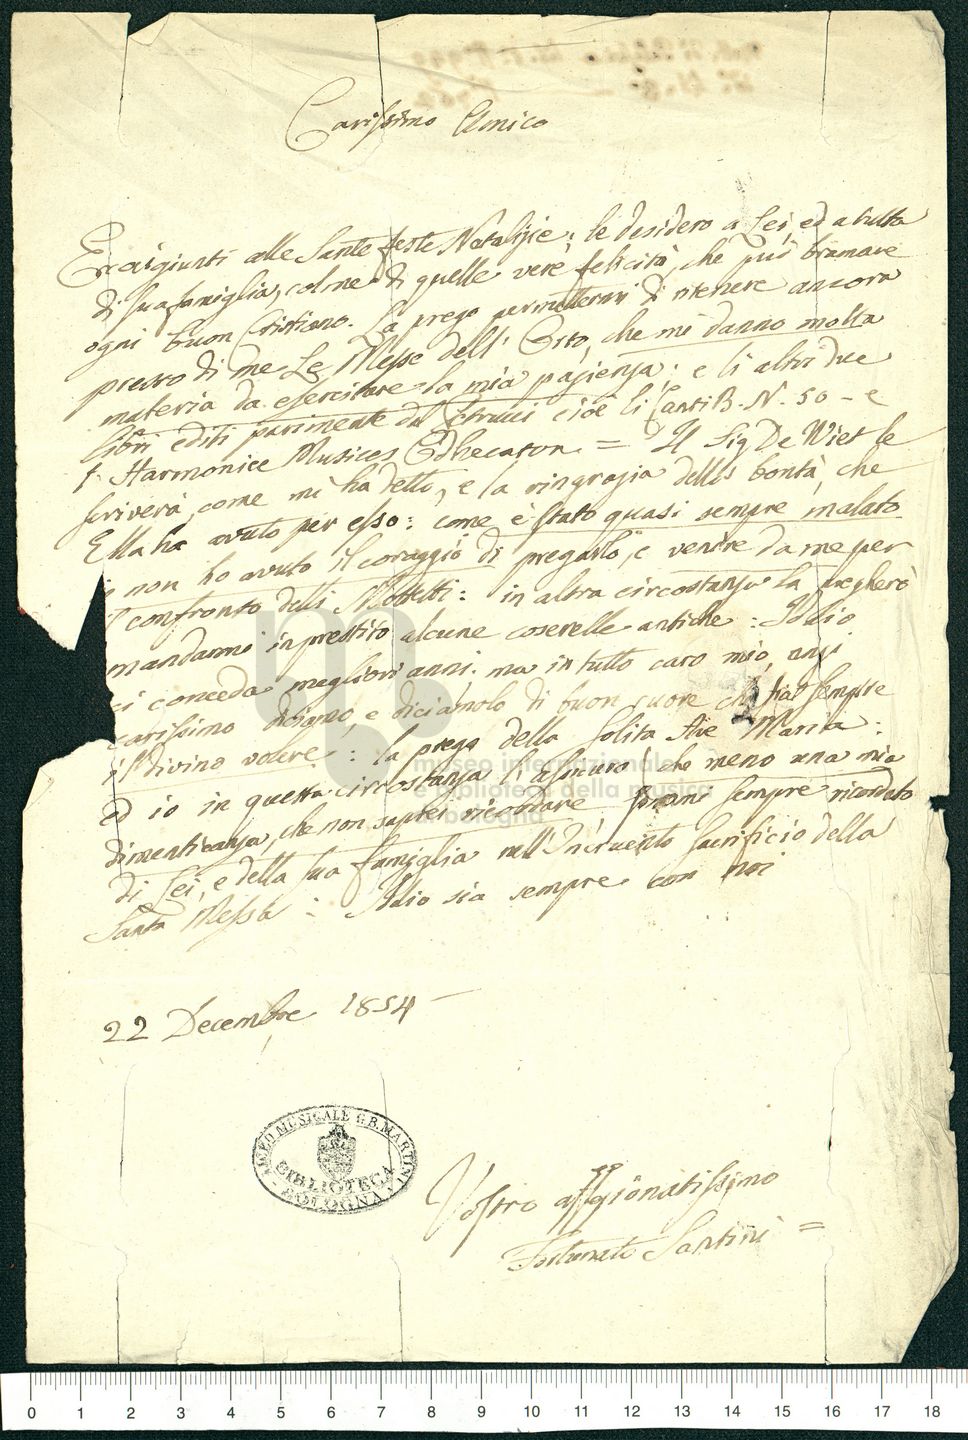 Carissimo Amico
Eccoci giunti alle Sante feste Natalizie: le desidero a Lei, ed a tutta
di sua famiglia, colme di quelle vere felicità, che può bramare
ogni buon Cristiano. La prego permettermi di ritenere ancora
presso di me Le Messe dell' Orto, che mi danno molta
materia da esercitare la mia pazienza: e li altri due
libri editi parimente da Petrucci cioè li Canti B. N. 50 - e
l' Harmonice Musices Odhecaton = Il Sig De Witt le
scriverà, come mi ha detto, e la ringrazia della bontà, che
Ella ha avuto per esso: come è stato quasi sempre malato
non ho avuto il coraggio di pregarlo, e venire da me per
confronto delli Mottetti: in altra circostanza la pregherò
mandarmi in prestito alcune coserelle antiche: Iddio
ci conceda migliori anni. ma in tutto caro mio, anzi
carissimo diciamo, e diciamolo di buon cuore che fiat sempre
il divino volere: la prego della solita Ave Maria:
ed io in questa circostanza l'assicuro, che meno una mia
dimenticanza, che non saprei ricordare, sempre ricordato
di Lei, e della sua famiglia nell'Incruento Sacrificio della
Santa Messa: Iddio sia sempre con noi
22 Decembre 1854
MUSEO MUSICALE G.B. MARTINI
BIBLIOTECA
BOLOGNA
Vostro affezionatissimo
Fortunato Santini =
museo internazionale
e biblioteca della musica
di bologna
0 1 2 3 4 5 6 7 8 9 10 11 12 13 14 15 16 17 18